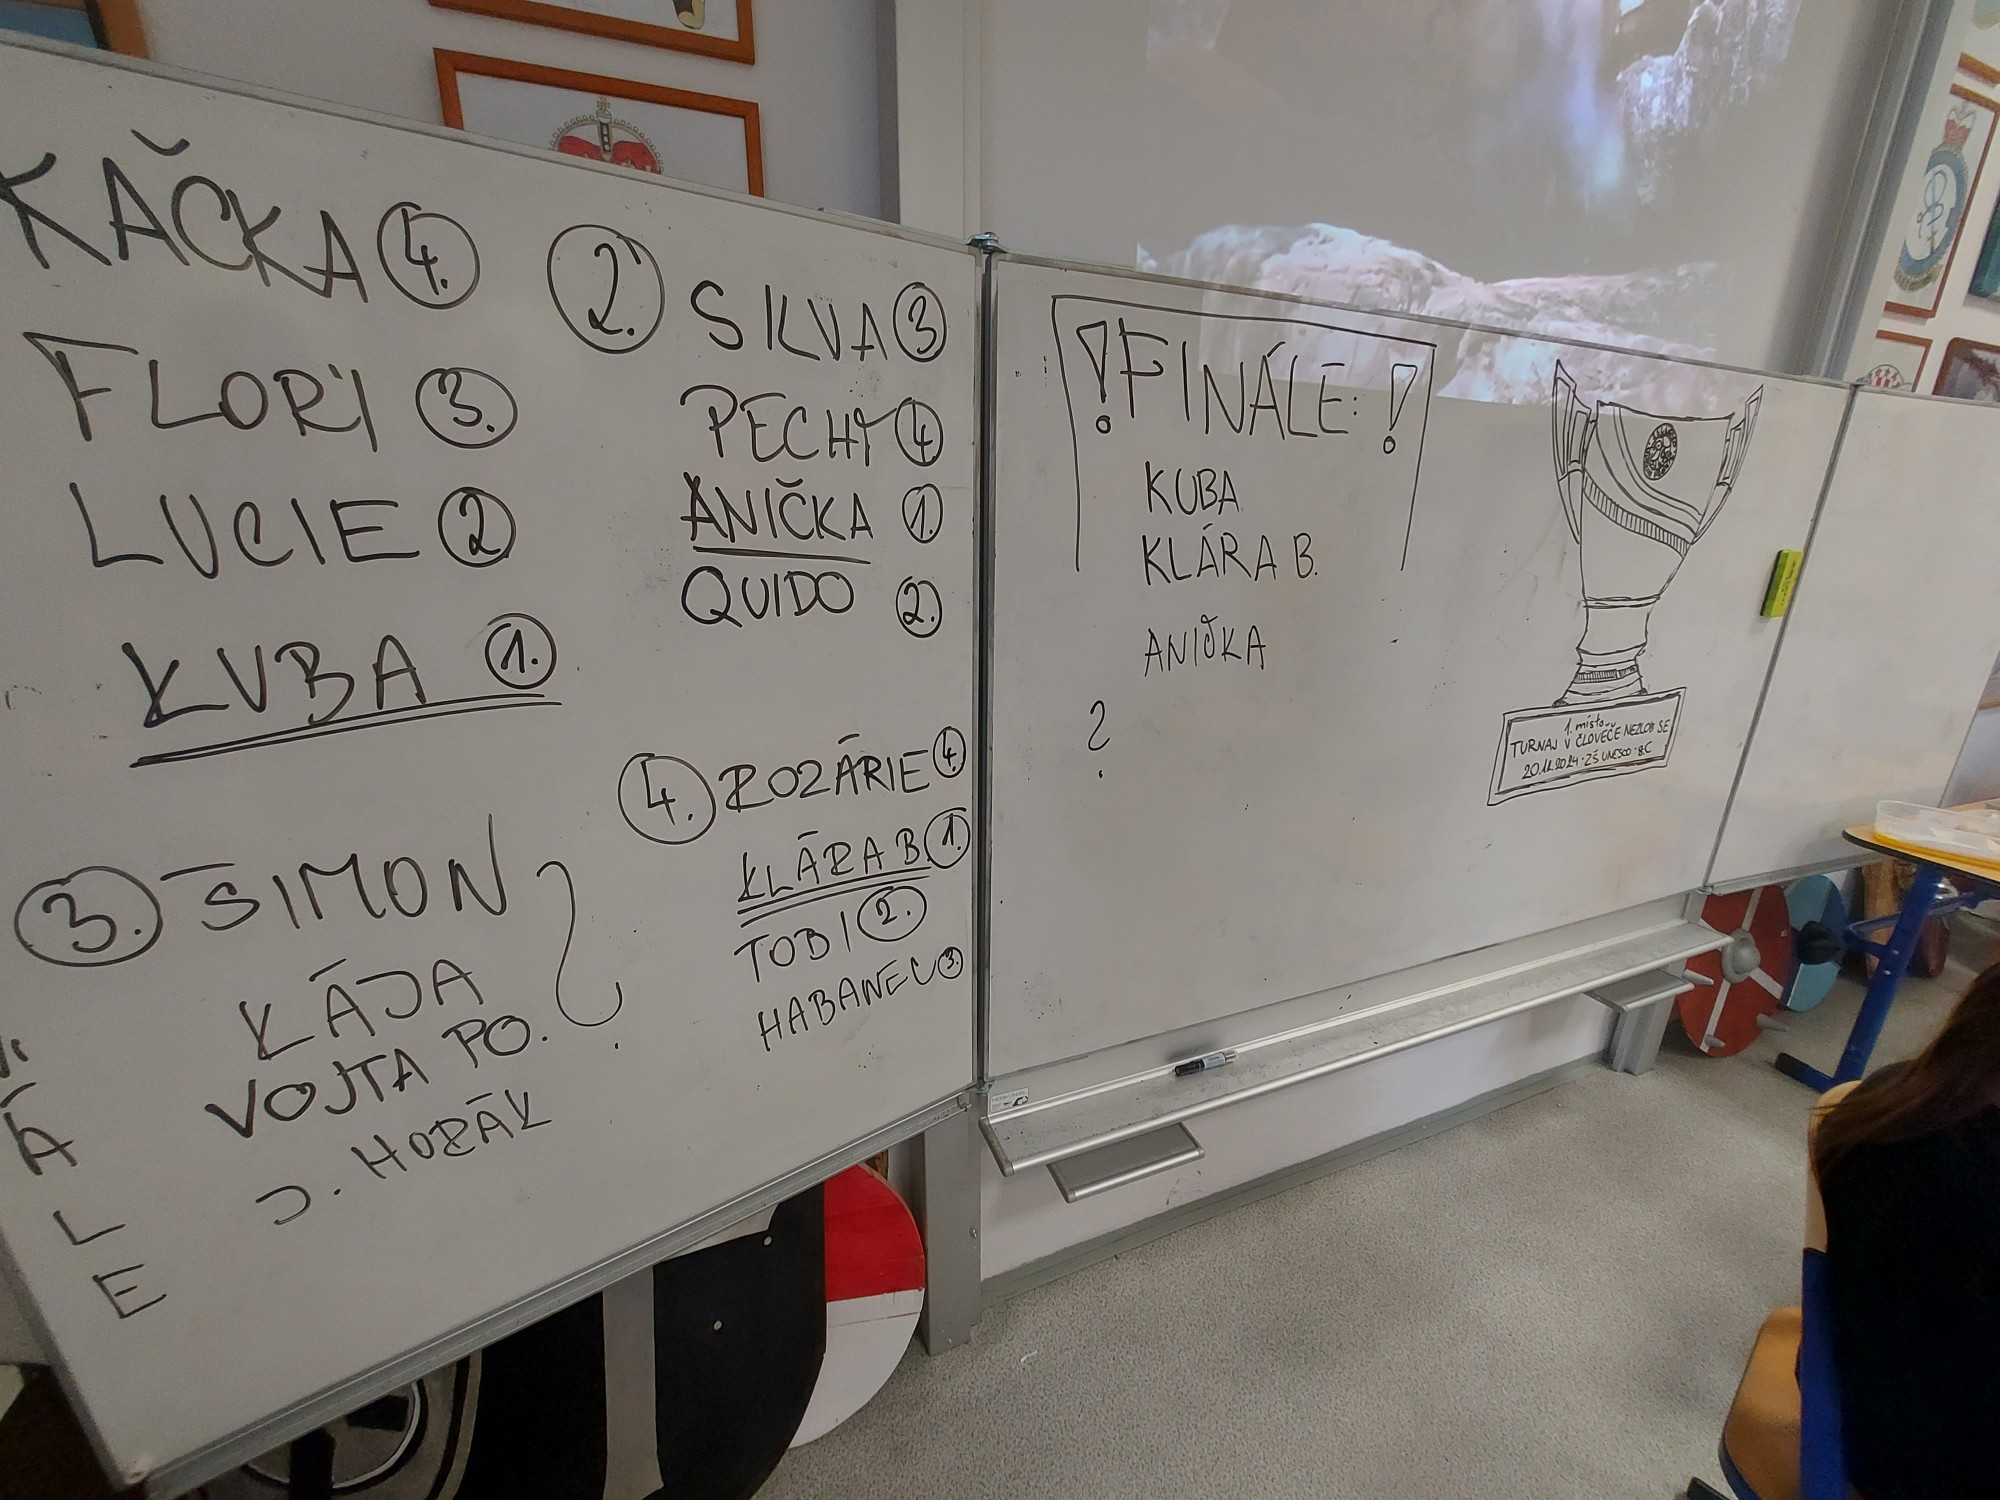 KÁČKA 4.
FLORI 3.
LUCIE 2
KUBA 1.
2. SILVA 3
PECHY 4
ANIČKA 1.
QUIDO 2.
3. ŠIMON ?
KÁJA
VOJTA PO.
J. HORÁK
4. ROZÁRIE 4.
KLÁRA B. 1.
TOBI 2.
HABANEC 3.
Á
L
E
! FINÁLE: !
KUBA
KLÁRA B.
ANIČKA
?
1. místo
TURNAJ V ČLOVĚČE NEZLOB SE
20.12.2024 · ZŠ UNESCO · 8.C